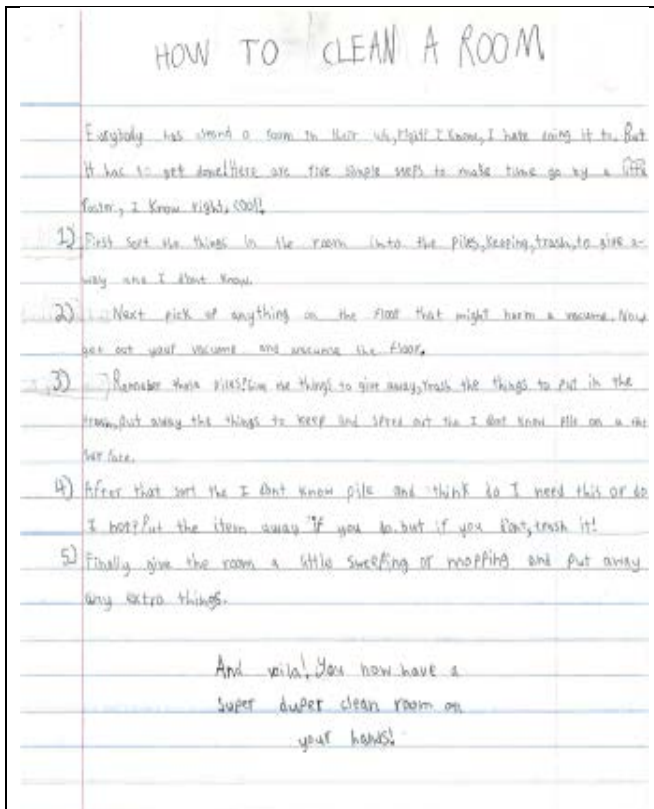 HOW TO CLEAN A ROOM
Everybody has a room in their right? I know, I hate doing it to. But
it has to get done! Here are five simple steps to make time go by a little
faster, I know right, cool!
1) First sort the things in the room into the piles, keeping, trash, to give a-
way and I dont know.
2) Next pick up anything on the floor that might harm a vacume. Now
get out your vacume and vacume the floor.
3) Remember those piles? Give the things to give away, trash the things to put in the
trash, put away the things to keep and spred out the I dont know pile on a
surface.
4) After that sort the I dont know pile and think do I need this or do
I not? Put the item away if you do. but if you dont, trash it!
5) Finally give the room a little sweeping or mopping and put away
any extra things.
And voila! You now have a
super duper clean room on
your hands!